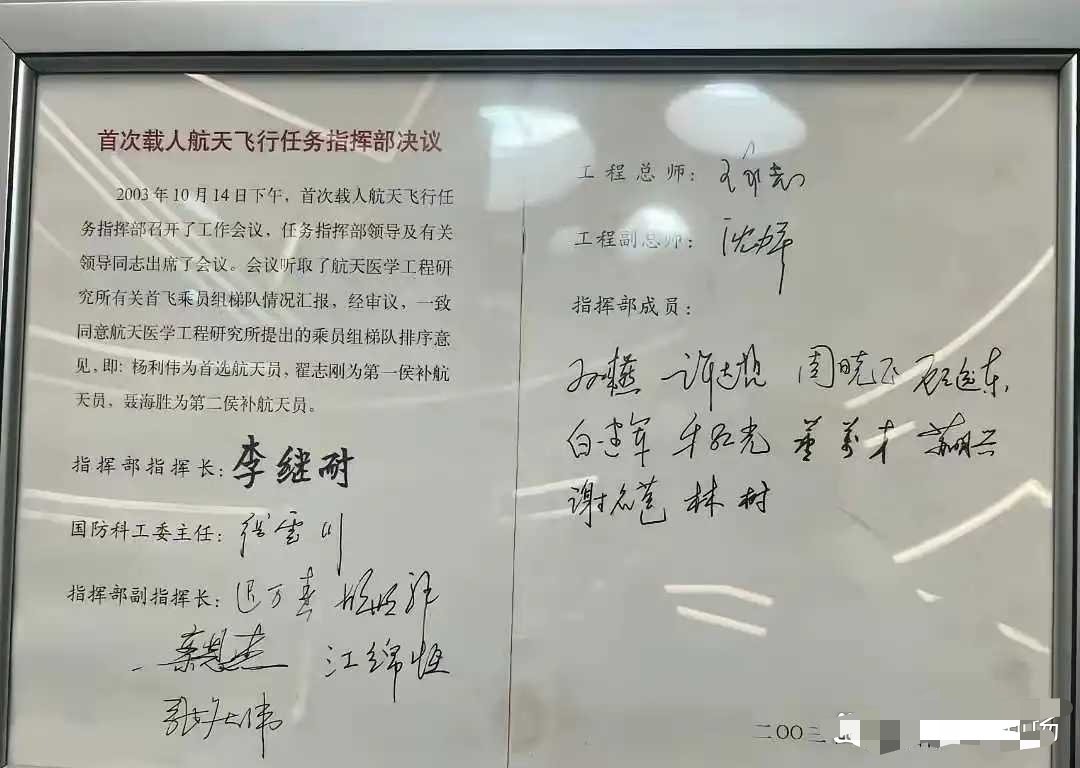 首次载人航天飞行任务指挥部决议
2003年10月14日下午，首次载人航天飞行任
务指挥部召开了工作会议，任务指挥部领导及有关
领导同志出席了会议。会议听取了航天医学工程研
究所有关首飞乘员组梯队情况汇报，经审议，一致
同意航天医学工程研究所提出的乘员组梯队排序意
见，即：杨利伟为首选航天员，翟志刚为第一侯补航
天员，聂海胜为第二侯补航天员。
指挥部指挥长：李继耐
国防科工委主任：张云川
指挥部副指挥长：迟万春 胡世祥
江绵恒
工程总师：王永志
工程副总师：沈力平
指挥部成员：
许达哲 周晓飞
白建军 牛红光 董万才
谢名苞 林树
二00三
场